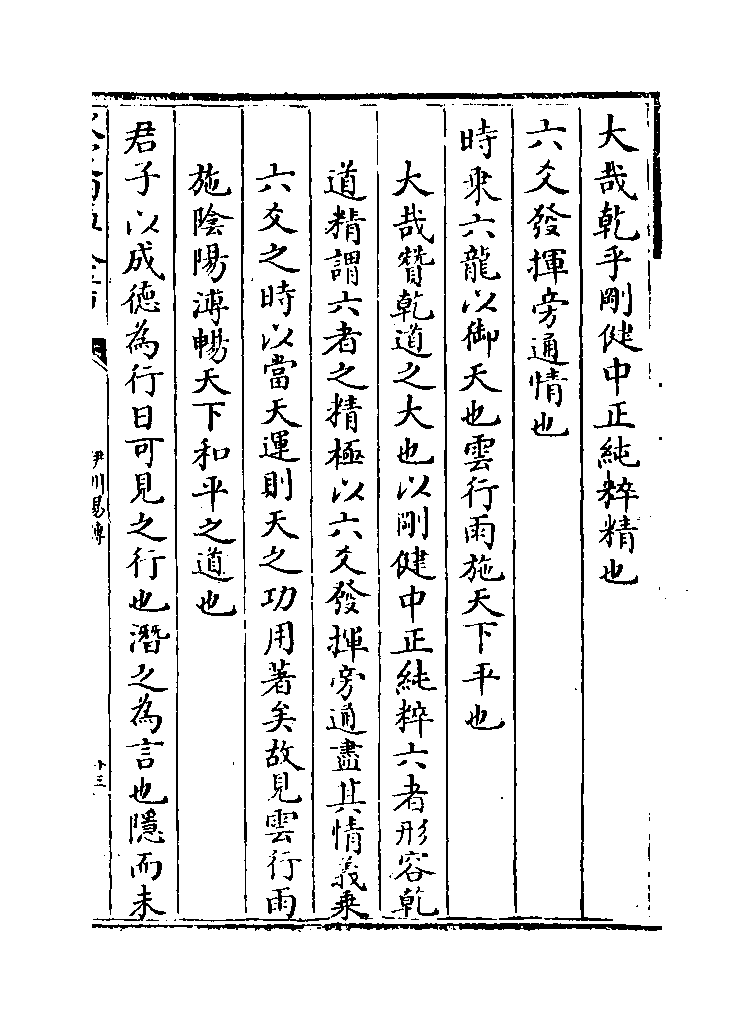 大哉乾乎剛健中正純粹精也
六爻發揮旁通情也
時乘六龍以御天也雲行雨施天下平也
大哉贊乾道之大也以剛健中正純粹六者形容乾
道精謂六者之精極以六爻發揮旁通盡其情義乘
六爻之時以當天運則天之功用著矣故見雲行雨
施陰陽溥暢天下和平之道也
君子以成德為行日可見之行也潛之為言也隱而未
伊川易傳
十三